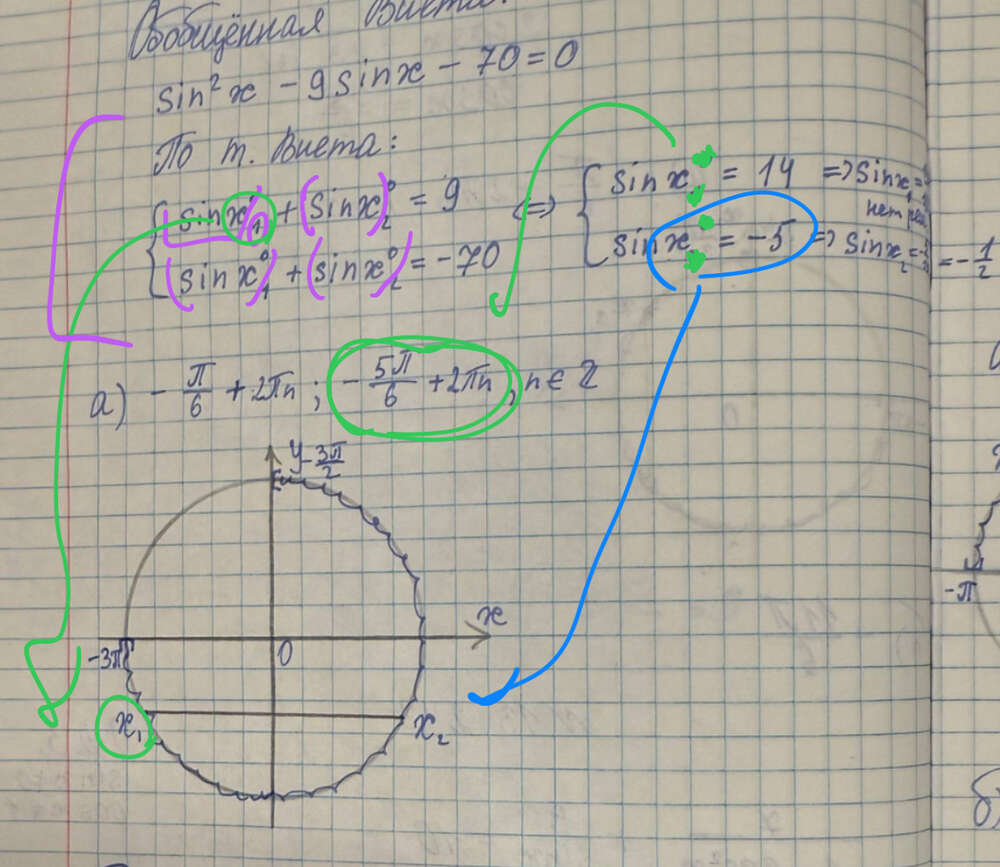 Обобщённая Виета:
sin² x - 9 sin x - 70 = 0
По т. Виета:
(sin x)₁ + (sin x)₂ = 9
(sin x)₁ + (sin x)₂ = -70
⇔
sin x = 14 ⇒ sin x₁ =
нет
sin x = -5 ⇒ sin x₂ = = -1/2
а) -π/6 + 2πn ; -5π/6 + 2πn, n ∈ Z
y -3π/2
x
-3π 0
x₁ x₂
-π
б)